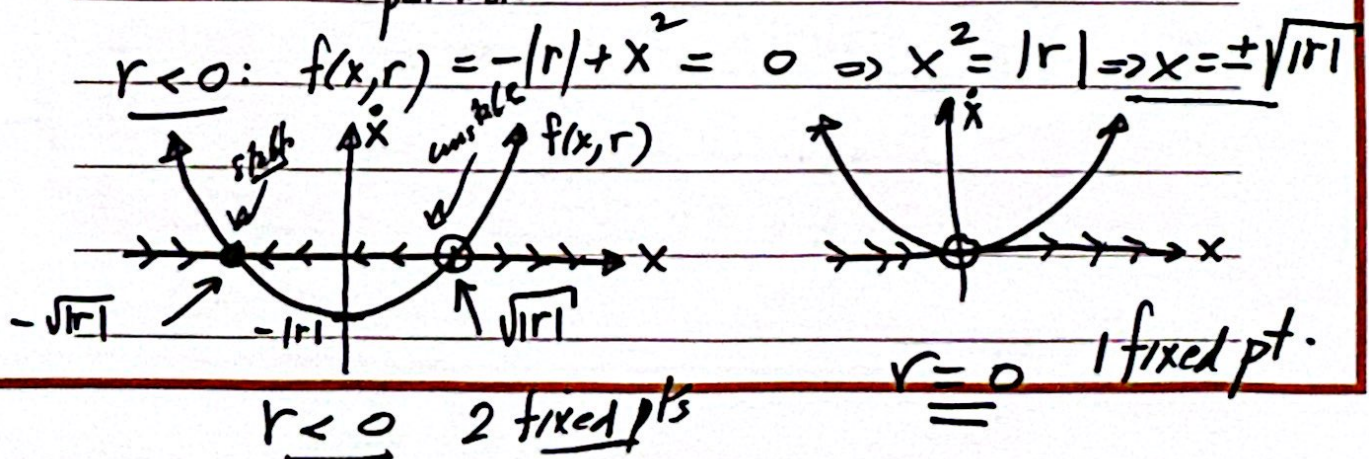 r < 0: f(x,r) = -|r| + x² = 0 ⇒ x² = |r| ⇒ x = ±√|r|
ẋ
stable
unstable
f(x,r)
ẋ
x
x
-√|r|
-|r|
√|r|
r < 0 2 fixed pts
r = 0 1 fixed pt.